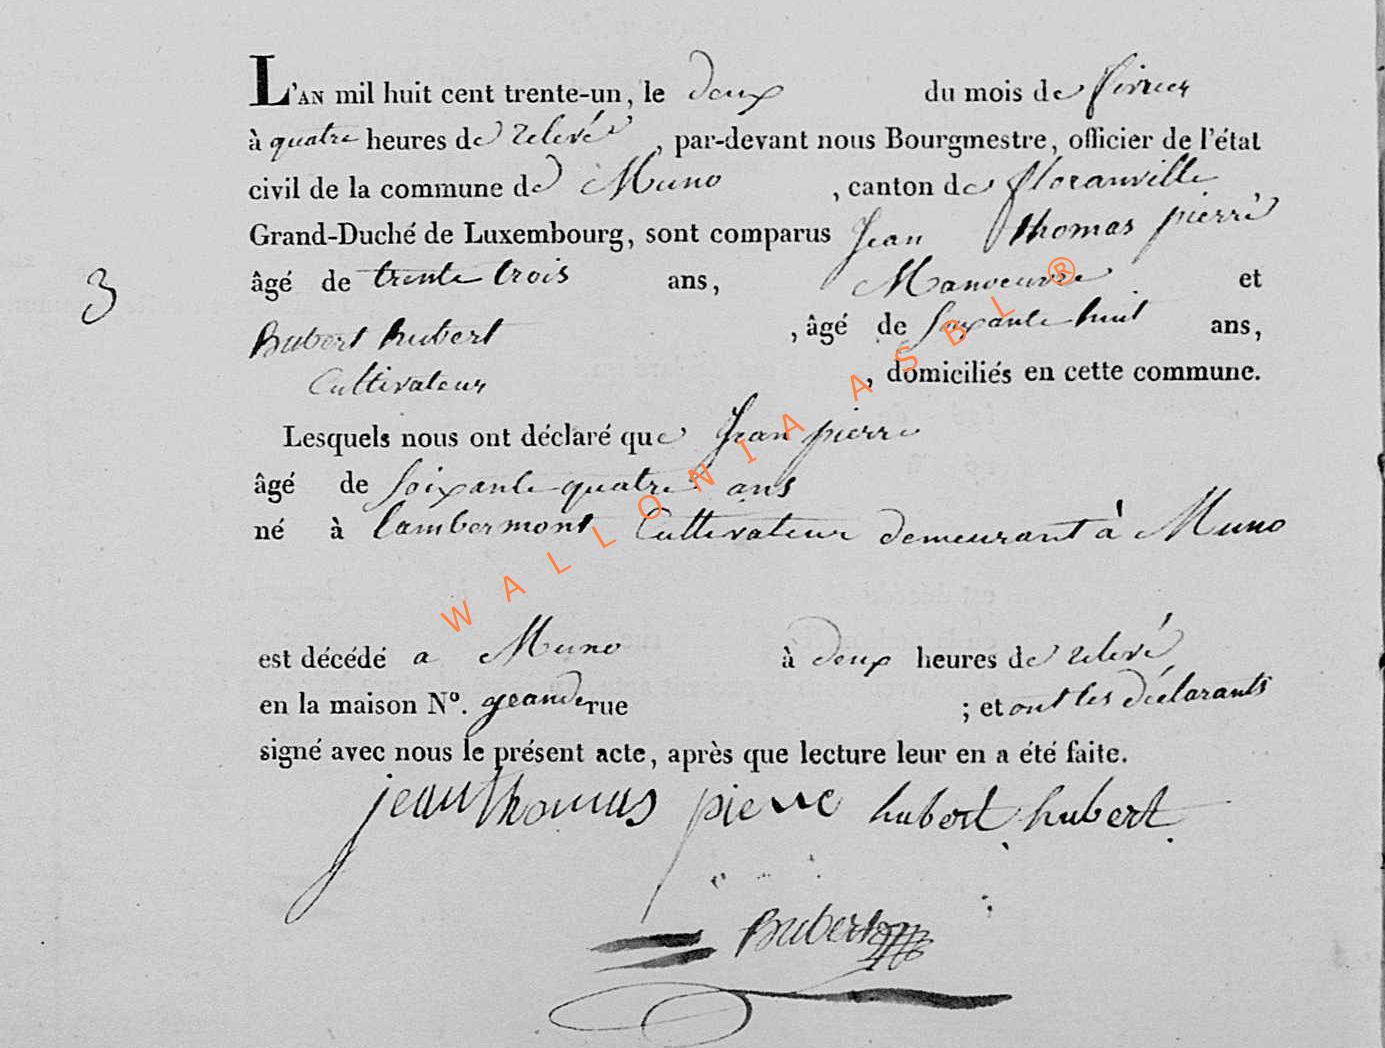 L'AN mil huit cent trente-un, le deux du mois de février
à quatre heures de relevé, par-devant nous Bourgmestre, officier de l'état
civil de la commune de Muno, canton de floranville
Grand-Duché de Luxembourg, sont comparus Jean thomas pierre
3 âgé de trente trois ans, Manoeuvre et
hubert hubert, âgé de soixante huit ans,
Cultivateur, domiciliés en cette commune.
Lesquels nous ont déclaré que Jean pierre
âgé de soixante quatre ans
né à lambermont Cultivateur demeurant à Muno
est décédé a Muno à deux heures de relevé
en la maison N°. grande rue ; et ont les déclarants
signé avec nous le présent acte, après que lecture leur en a été faite.
jean thomas pierre hubert hubert
WALLONIA ASBL ®